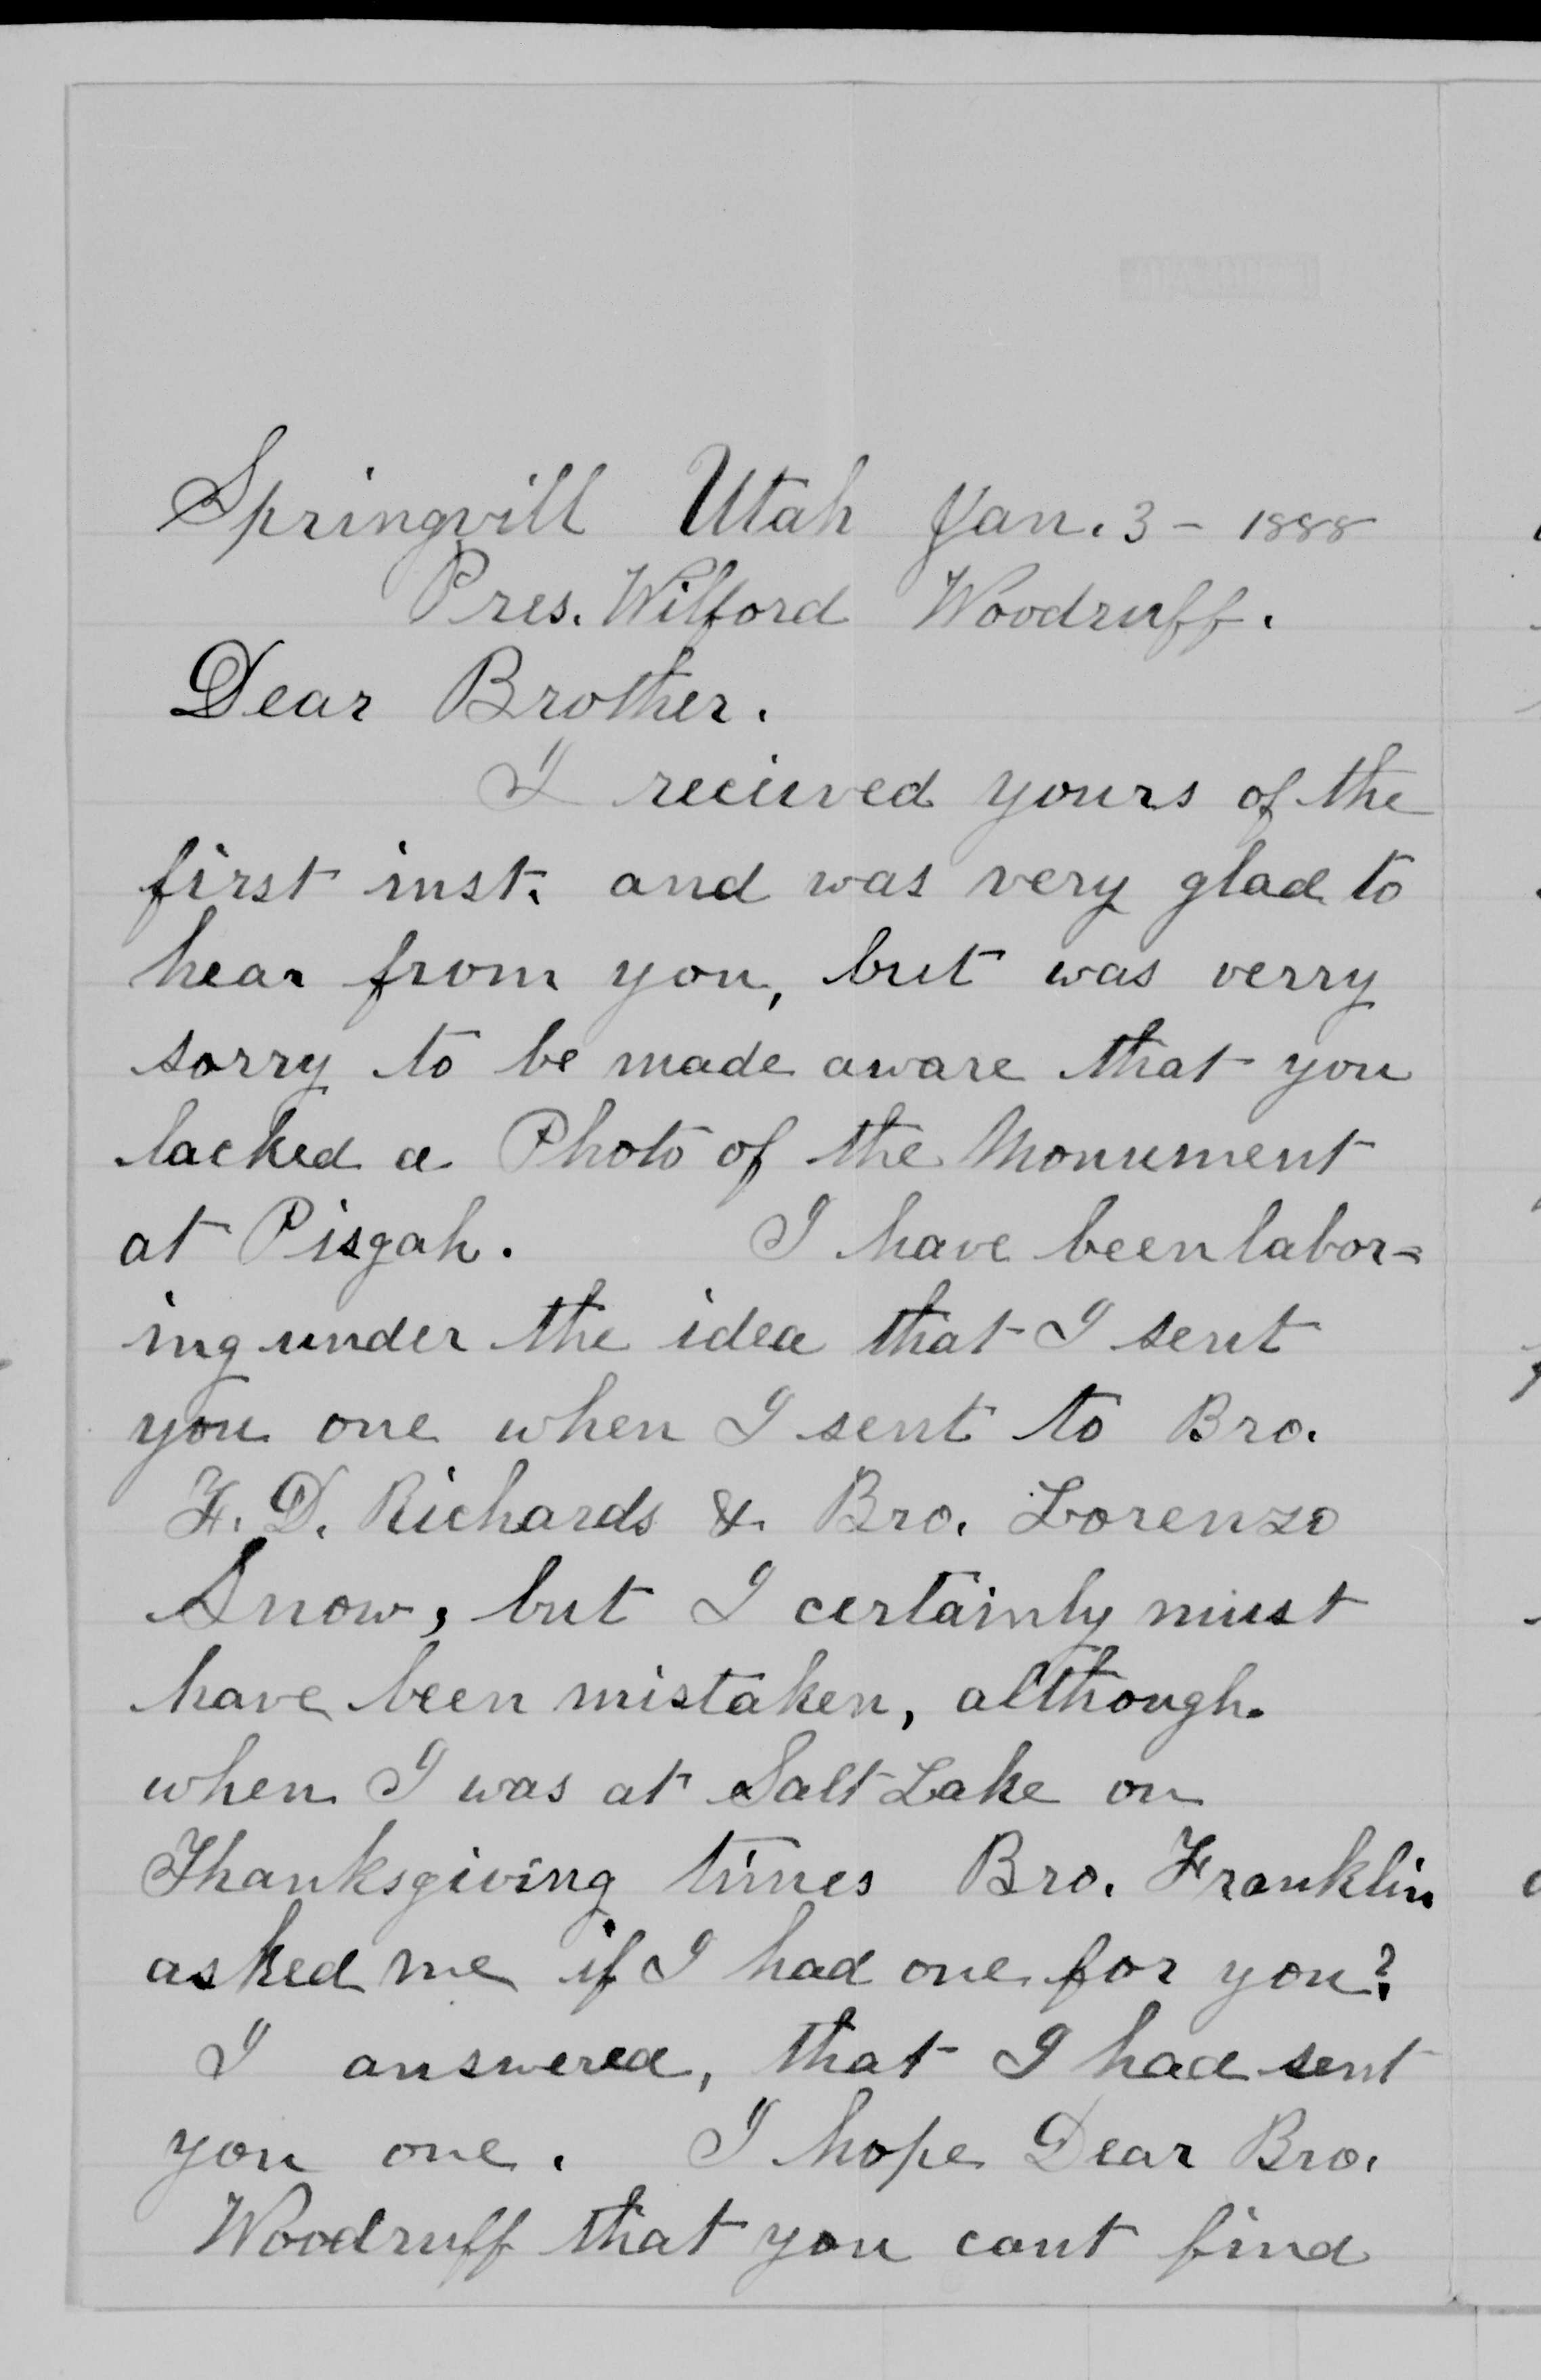 Springvill Utah Jan. 3 - 1888
Pres. Wilford Woodruff.
Dear Brother.
I recieved yours of the
first inst. and was very glad to
hear from you, but was verry
sorry to be made aware that you
lacked a Photo of the Monument
at Pisgah. I have been labor=
ing under the idea that I sent
you one when I sent to Bro.
F. D. Richards & Bro. Lorenzo
Snow, but I certainly must
have been mistaken, although
when I was at Salt Lake on
Thanksgiving times Bro. Franklin
asked me if I had one for you?
I answered, that I had sent
you one. I hope Dear Bro.
Woodruff that you cant find